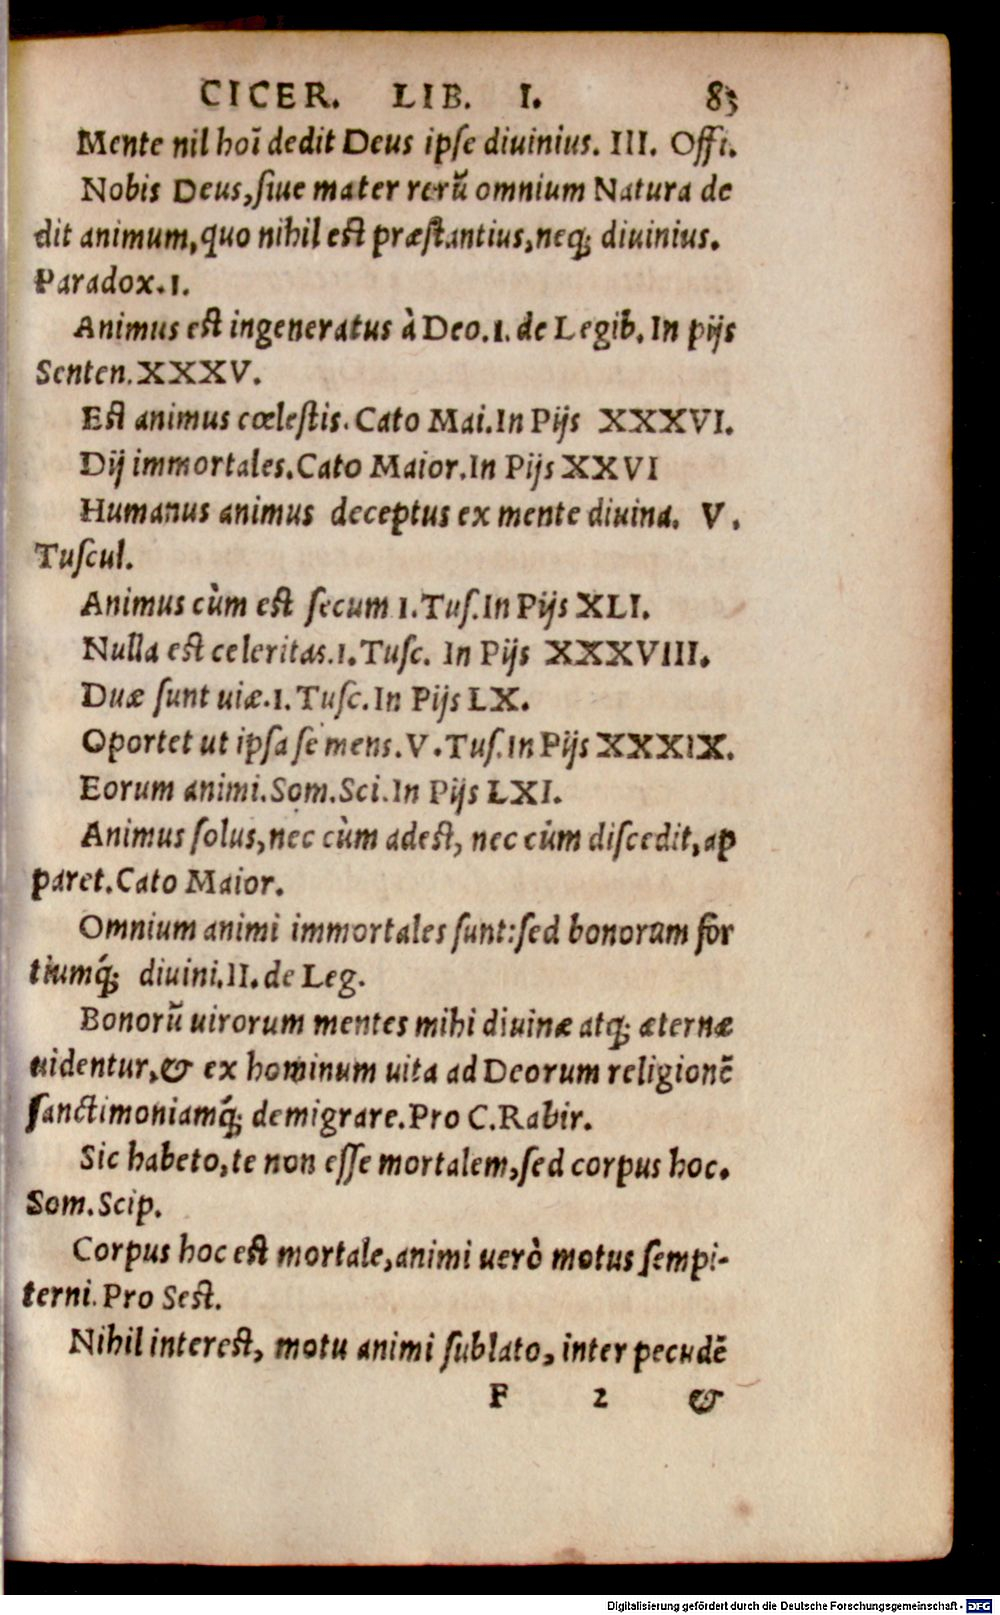 CICER. LIB. I. 83
Mente nil hoī dedit Deus ipſe diuinius. III. Offi.
Nobis Deus, ſiue mater rerū omnium Natura de
dit animum, quo nihil eſt præſtantius, neq; diuinius.
Paradox. I.
Animus eſt ingeneratus à Deo. I. de Legib. In pijs
Senten. XXXV.
Eſt animus cœleſtis. Cato Mai. In Pijs XXXVI.
Dij immortales. Cato Maior. In Pijs XXVI
Humanus animus deceptus ex mente diuina. V.
Tuſcul.
Animus cùm eſt ſecum I. Tuſ. In Pijs XLI.
Nulla eſt celeritas. I. Tuſc. In Pijs XXXVIII.
Duæ ſunt uiæ. I. Tuſc. In Pijs LX.
Oportet ut ipſa ſe mens. V. Tuſ. In Pijs XXXIX.
Eorum animi. Som. Sci. In Pijs LXI.
Animus ſolus, nec cùm adeſt, nec cùm diſcedit, ap
paret. Cato Maior.
Omnium animi immortales ſunt: ſed bonorum for
tiumq́; diuini. II. de Leg.
Bonorū uirorum mentes mihi diuinæ atq; æternæ
uidentur, & ex hominum uita ad Deorum religionē
ſanctimoniamq́; demigrare. Pro C. Rabir.
Sic habeto, te non eſſe mortalem, ſed corpus hoc.
Som. Scip.
Corpus hoc eſt mortale, animi uerò motus ſempi-
terni. Pro Seſt.
Nihil intereſt, motu animi ſublato, inter pecudē
F 2 &
Digitalisierung gefördert durch die Deutsche Forschungsgemeinschaft - DFG